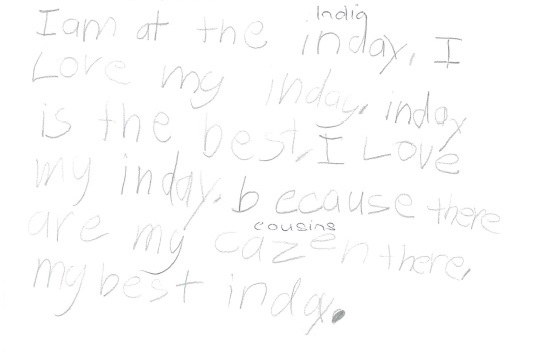 Indig
I am at the inday, I
Love my inday, inday
is the best, I Love
my inday. because there
are my cazen there,
cousins
my best inday.